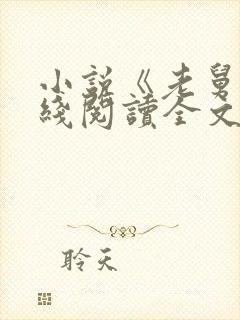 小說《老舅
綫閱讀全文
聆天